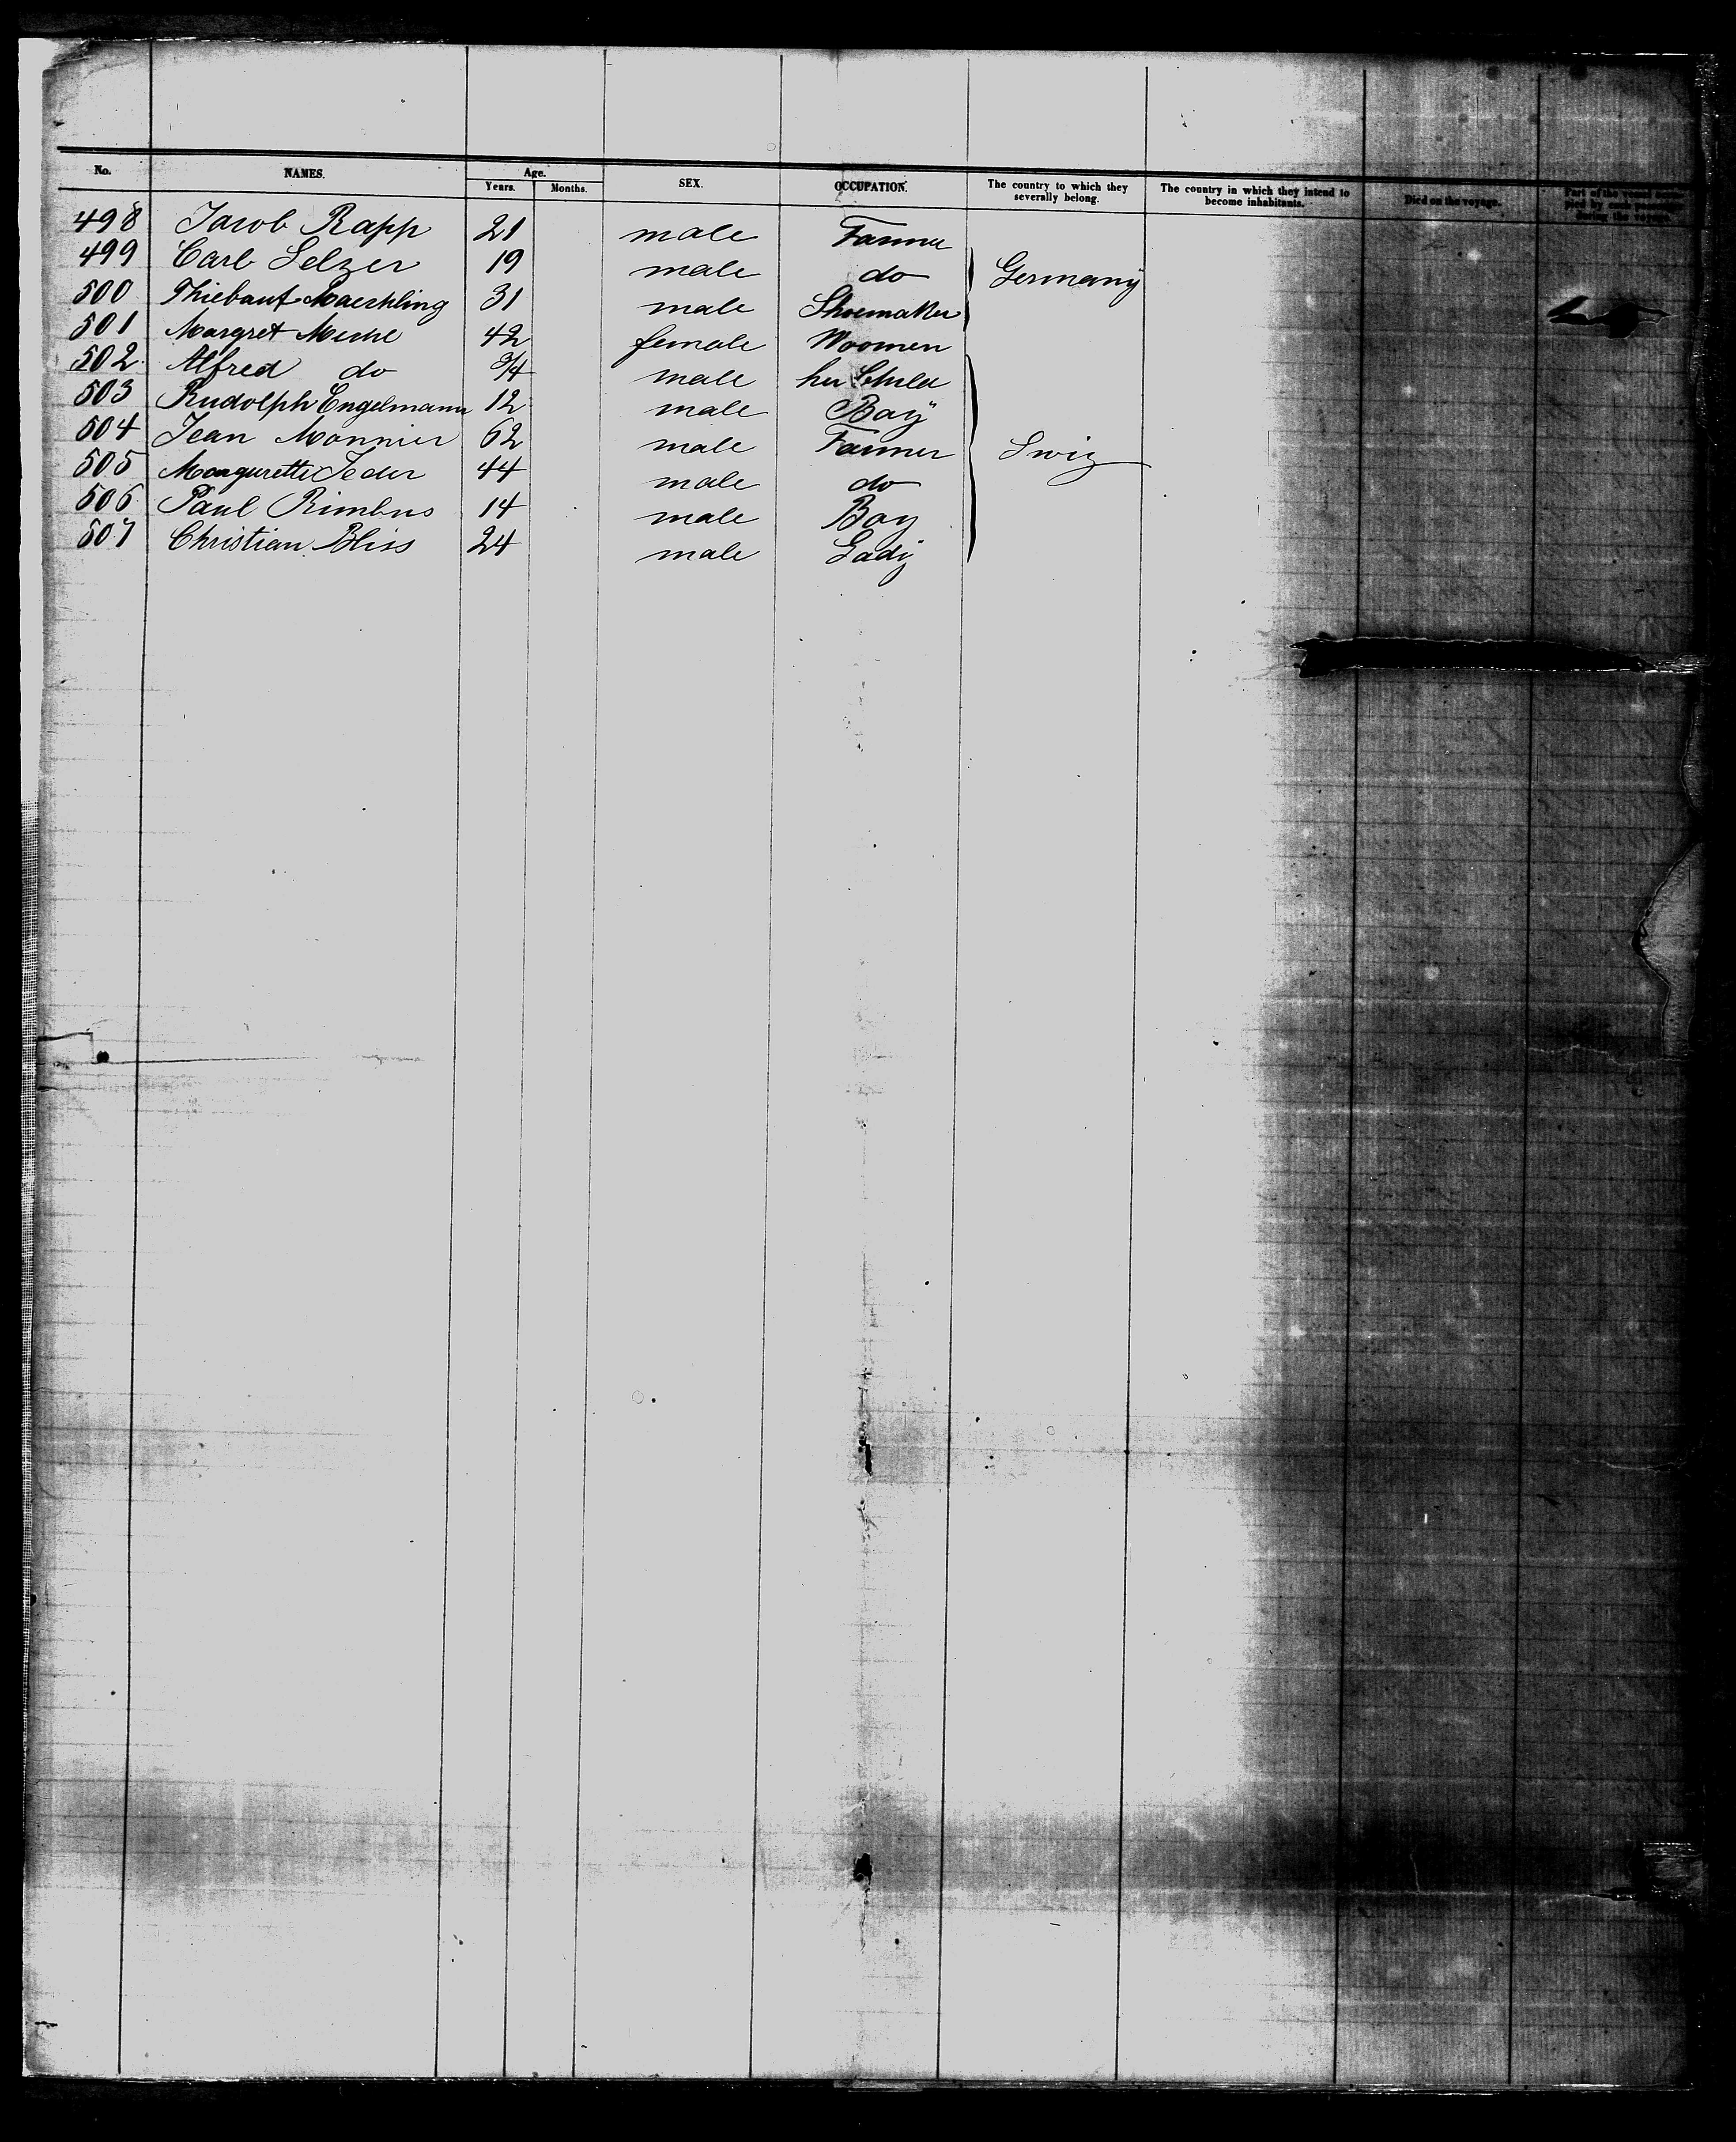 No. NAMES. Age. Years. Months. SEX. OCCUPATION. The country to which they severally belong. The country in which they intend to become inhabitants. Died on the voyage. Part of the vessel occupied by each passenger during the voyage.
498 Jacob Rapp 21 male Farmer
499 Carl Selzer 19 male do Germany
500 Thiebaut Maechling 31 male Shoemaker
501 Margret Meme 42 female Woomen
502 Alfred do 3/4 male her Child
503 Rudolph Engelmann 12 male Boy
504 Jean Monnier 62 male Farmer Swiz
505 Margurette Jeder 44 male do
506 Paul Rimbus 14 male Boy
507 Christian Bliss 24 male Lady